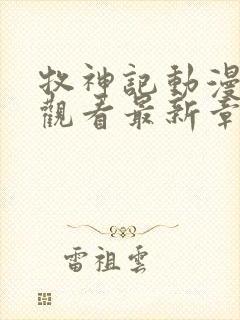 牧神記動漫
觀看最新章
雷祖雲